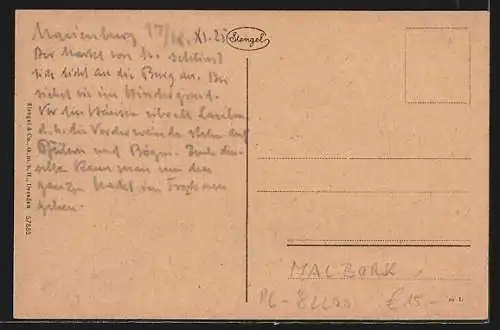 Marienburg 17/18. XI. 25
Stengel
Der Markt von M. schliesst
sich dicht an die Burg an. Der
sieht sie im Hintergrund.
Vor den Häusern Lauben
d. h. die Vorderwände stehen auf
Pfeilern und Bögen. Durch die-
selbe kann man um den
ganzen Markt im Trockenen
gehen.
Stengel & Co., G. m. b. H., Dresden 57885
MALBORK
PL - 82200 € 15.-